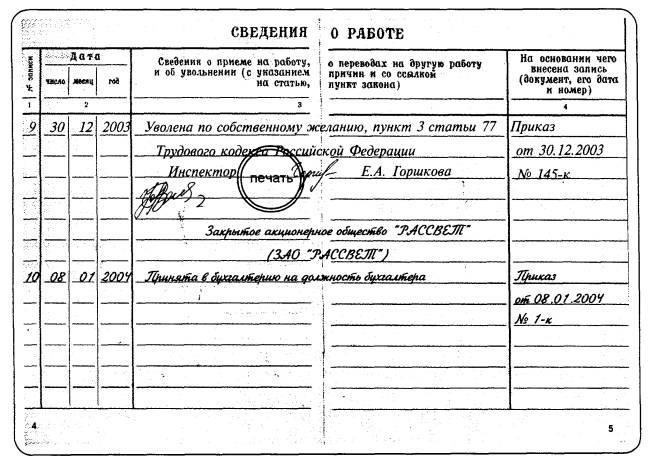 СВЕДЕНИЯ О РАБОТЕ
№ записи
Дата
число месяц год
Сведения о приеме на работу, о переводах на другую работу
и об увольнении (с указанием причин и со ссылкой
на статью, пункт закона)
На основании чего
внесена запись
(документ, его дата
и номер)
1 2 3 4
9 30 12 2003 Уволена по собственному желанию, пункт 3 статьи 77 Приказ
Трудового кодекса Российской Федерации от 30.12.2003
Инспектор Е.А. Горшкова № 145-к
печать
Закрытое акционерное общество "РАССВЕТ"
(ЗАО "РАССВЕТ")
10 08 01 2004 Принята в бухгалтерию на должность бухгалтера Приказ
от 08.01.2004
№ 1-к
4 5